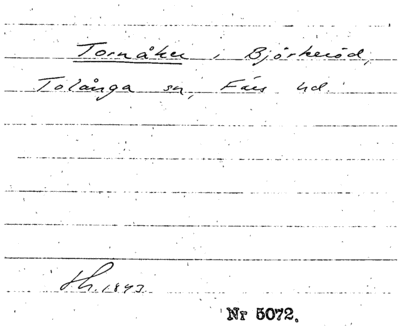 Tornåker i Björkeröd,
Tolånga sn, Färs hd.
Sk. 1843
Nr 5072.